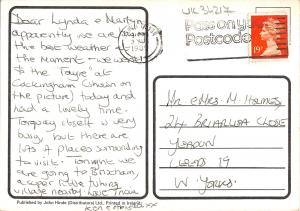 Dear Lynda & Martyn
apparently we are
the best weather
the moment - we went
to the "Fayre" at
Cockingham (shown on
the picture) today and
had a lovely time.
Torquay itself is very
busy, but there are
lots of places surrounding
to visit. Tonight we
are going to Brixham,
a super little fishing
village nearby. Love from
xx
Published by John Hinde (Distributors) Ltd. Printed in Ireland.
UK 36217
Pass on your
Postcode
19
Mr & Mrs. M. Holmes
24 BRIARLEA CLOSE
YEADON
LEEDS 19
W. Yorks.